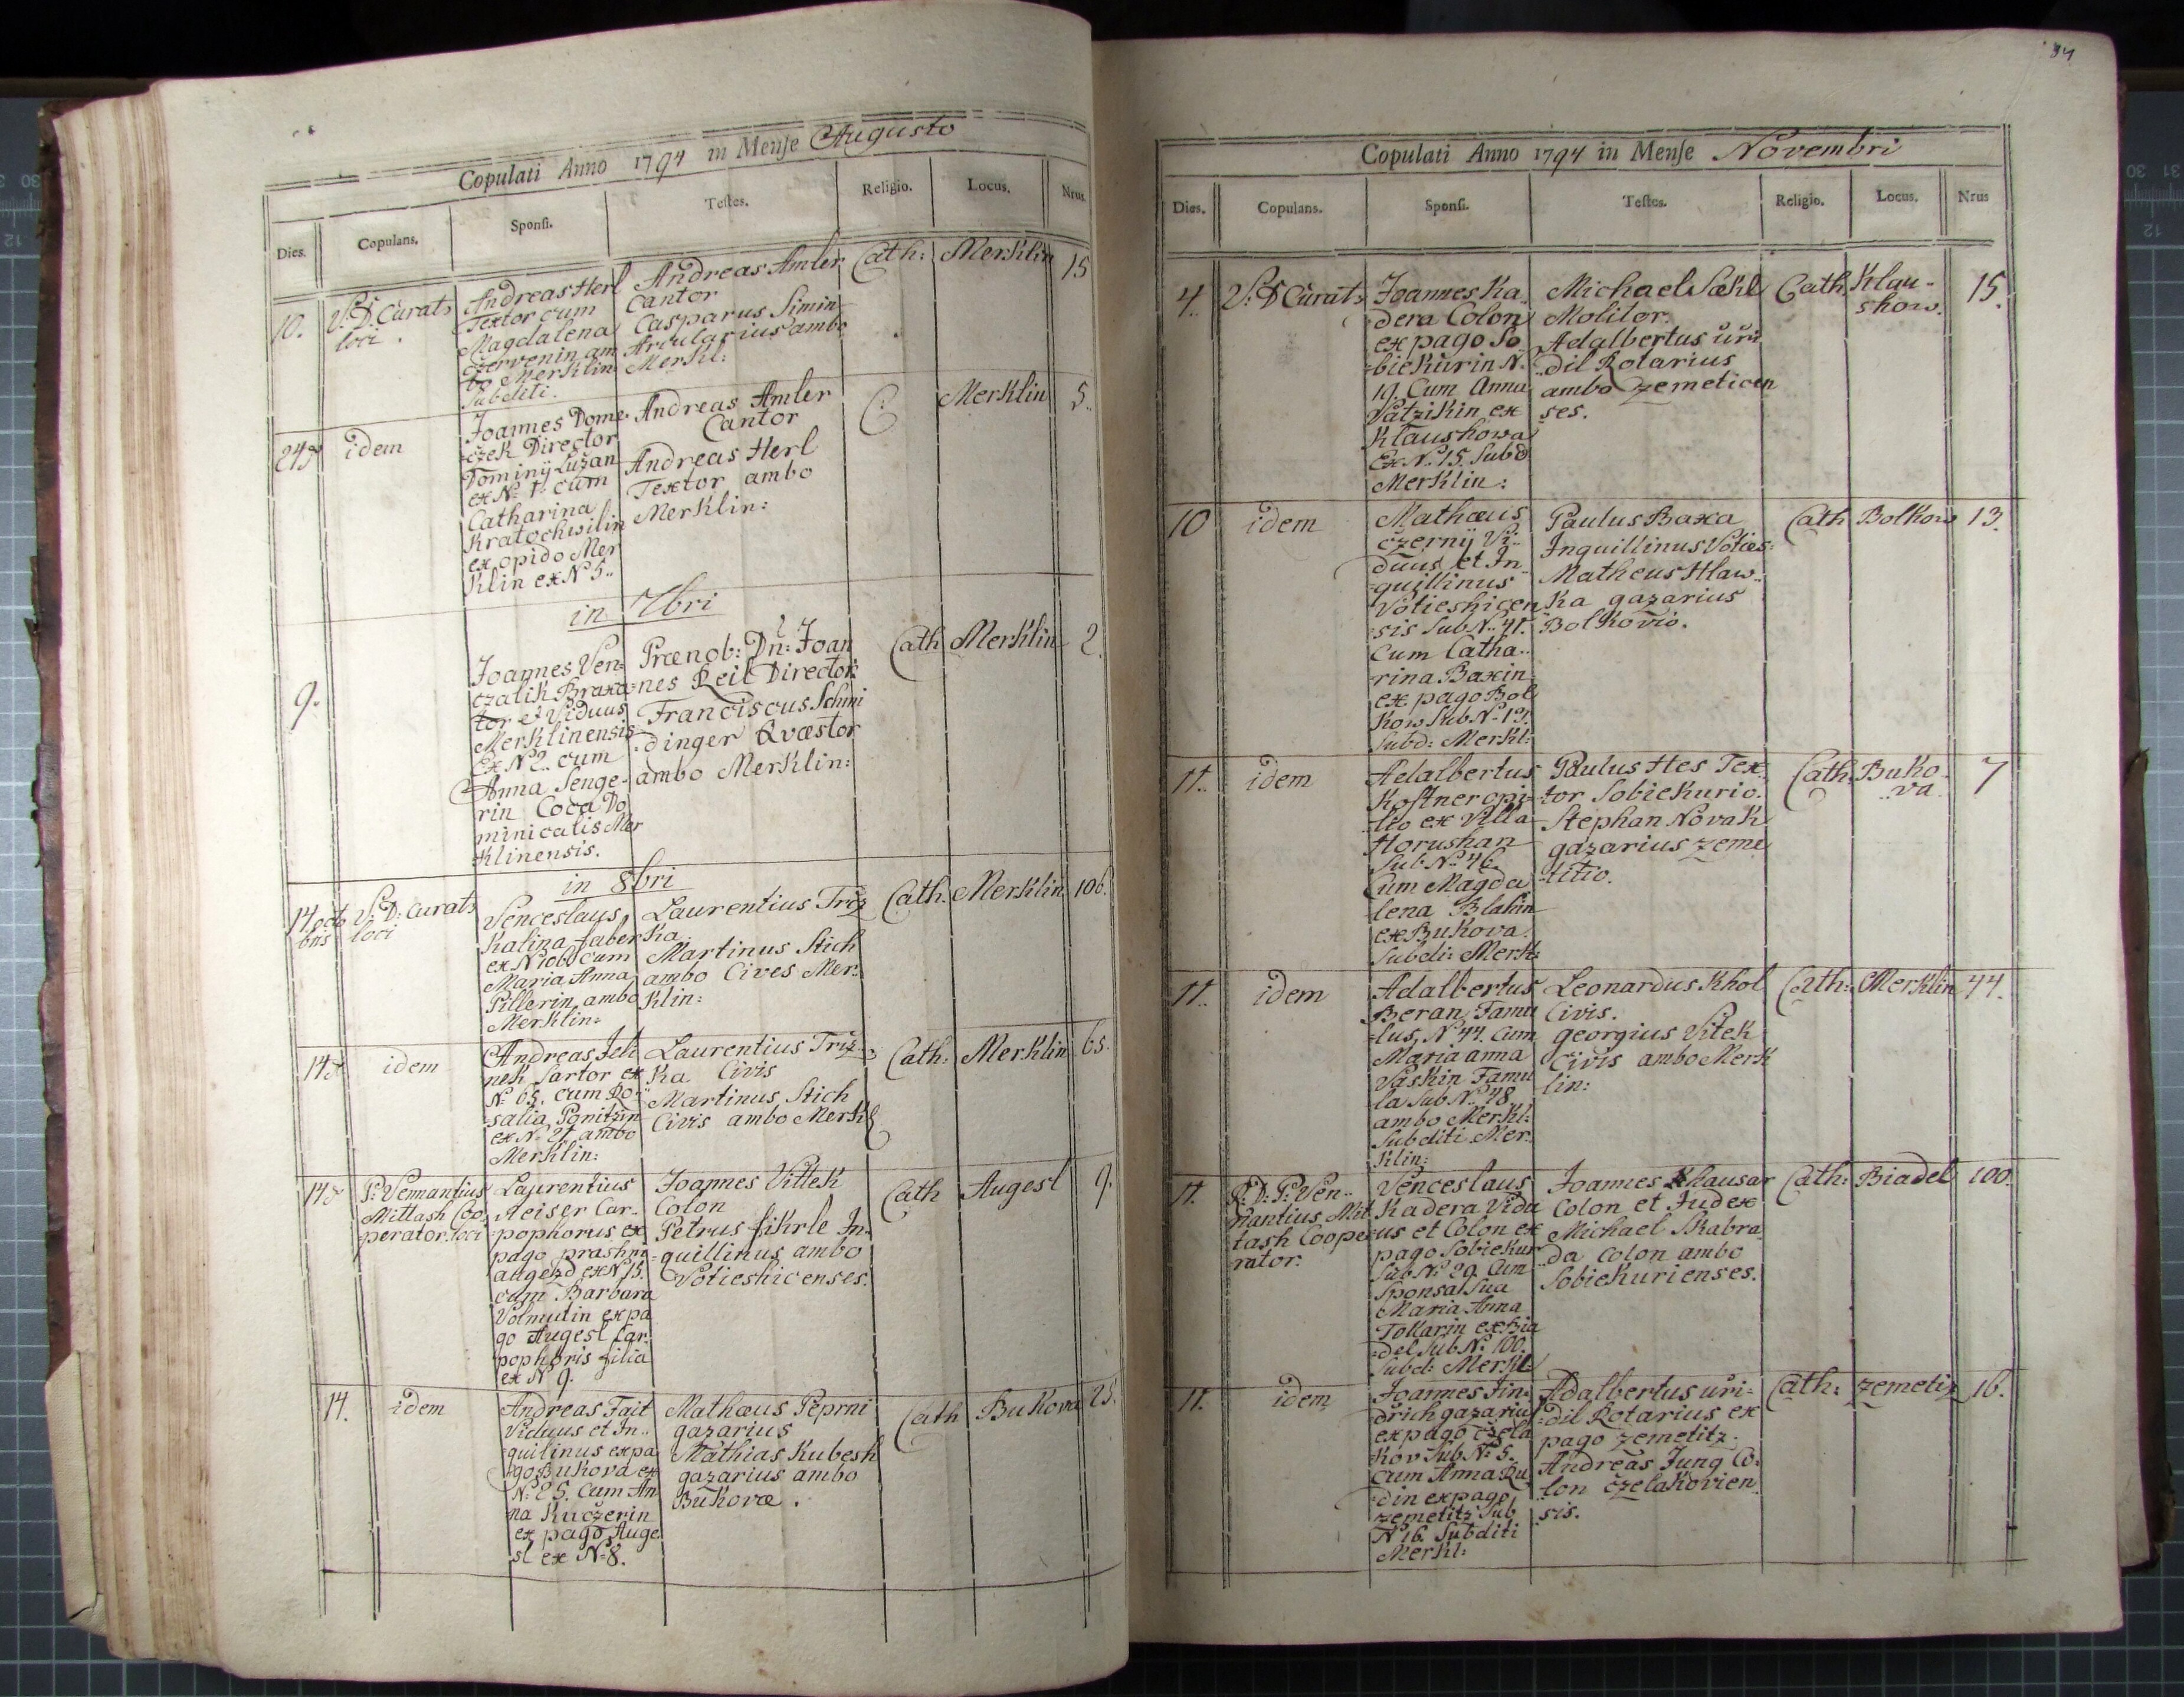 Copulati Anno 1794 in Mense Augusto
Dies. Copulans. Sponsi. Testes. Religio. Locus. Nrus
10. V: D: Curat9 loci.
Andreas Herl
Textor cum
Magdalena
Czervenin am
bo Merklin
Subditi.
Andreas Amler
Cantor
Casparus Simin
Arcularius ambo
Merkl:
Cath: Merklin 15
24 idem
Joannes Dome
czek Director
Dominij Lužan
ex N. 1. cum
Catharina
Kratochwilin
ex opido Mer
klin ex N 5..
Andreas Amler
Cantor
Andreas Herl
Textor ambo
Merklin:
C: Merklin 5..
in 7bri
9.
Joannes Ven=
czalik Braxa=
tor et Viduus
Merklinensis
Ex N 2. cum
Anna Senge=
rin Coca Do
minicalis Mer
klinensis.
Prænob: Dn: Joan
nes Reil Director
Franciscus Schmi
dinger Quæstor
ambo Merklin:
Cath Merklin 2.
in 8bri
14 octo
bris
V: D: Curat9
loci
Venceslaus
Kalina faber
ex N 106 cum
Maria Anna
Pillerin ambo
Merklin:
Laurentius Triz
ka.
Martinus Stich
ambo Cives Mer=
klin:
Cath. Merklin 106.
14 idem
Andreas Jeli
nek Sartor ex
N: 65. cum Ro=
salia Panitzin
ex N. 21 ambo
Merklin:
Laurentius Triz=
ka Civis
Martinus Stich
Civis ambo Merkl
Cath: Merklin 65.
14
P: Vennantius
Mittash Coo
perator loci
Laurentius
Reiser Car=
pophorus ex
pago prashni
augezd ex N 15.
cum Barbara
Volmutin ex pa
go Augesl Car
pophoris filia
ex N 9.
Joannes Vittek
Colon
Petrus fikrle In=
quillinus ambo
Votieshicenses.
Cath Augesl 9.
14. idem
Andreas Fait
Viduus et In..
quilinus ex pa
go Bukova ex
N: 25. cum An
na Kuczerin
ex pago Auge
sl ex N: 8.
Mathæus Peprni
gazarius
Mathias Kubesh
gazarius ambo
Bukovæ.
Cath Bukova 25.
Copulati Anno 1794 in Mense Novembri
Dies. Copulans. Sponsi. Testes. Religio. Locus. Nrus
4. V: D Curat9
Joannes Ka
dera Colon
ex pago So
biekurin N.
19. Cum Anna
Vatzikin ex
Klaushowa
Ex N. 15. Subd
Merklin:
Michael Sækl
Molitor.
Adalbertus uri
dil Rotarius
ambo Zemeticen
ses.
Cath Klau=
show. 15.
10 idem
Mathæus
czerny Vi..
duus et In
quillinus
Votieshicen
sis Sub N. 41.
Cum Catha..
rina Baxin
ex pago Bol
kow Sub N. 13.
Subd: Merkl:
Paulus Baxa
Inquillinus Voties:
Matheus Hlaw..
ka gazarius
Bolkovio.
Cath Bolkow 13.
11.. idem
Adalbertus
Kostner opi=
lio ex Villa
Horushan
Sub N: 46
Cum Magda
lena Blahin
ex Bukova.
Subdi: Merk:
Paulus Hes Tex
tor Sobiekurio.
Stephan Novak
gazarius zeme
titio.
Cath: Buko
va 7
11.. idem
Adalbertus
Beran Famu
lus, N 44. Cum
Maria anna
Vaskin Famu
la Sub N. 48
ambo Merkl:
Subditi Mer
klin:
Leonardus Khol
Civis.
Georgius Vitek
Civis ambo Merk
lin:
Cath: Merklin 44.
11. R: D: P: Ven..
nantius Mit
tash Coope
rator.
Venceslaus
Kadera Vidu
us et Colon ex
pago Sobiekur
Sub N: 29 Cum
Sponsa Sua
Maria Anna
Tokarin ex Bia
del Sub N: 100.
Subd: Merkl:
Joannes Khausar
Colon et Judex
Michael Skabra
da Colon ambo
Sobiekurienses.
Cath: Biadel 100.
11. idem
Joannes Jin=
drich gazarius
ex pago czela
kov Sub N: 5.
cum Anna Ru
din ex pago
zemetitz Sub
N 16. Subditi
Merkl:
Adalbertus uri=
dil Rotarius ex
pago zemetitz.
Andreas Jung Co=
lon czelakovien
sis.
Cath: zemetiz 16.